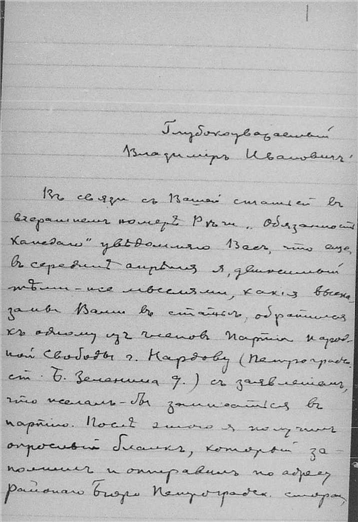 Глубокоуважаемый
Владиміръ Ивановичъ!
Въ связи съ Вашей статьей въ
вчерашнемъ номерѣ Рѣчи „Обязанность
каждаго" увѣдомляю Васъ, что еще
въ серединѣ апрѣля я, движимый
тѣми-же мыслями, какія выска-
заны Вами въ статьѣ, обратился
къ одному изъ членовъ Партіи народ-
ной Свободы г. Нардову (Петроградск.
ст. Б. Зеленина 9.) съ заявленіемъ,
что желалъ-бы записаться въ
партію. Послѣ этого я получилъ
опросный бланкъ, который за-
полнилъ и отправилъ по адресу
районнаго Бюро Петроградск. стороны